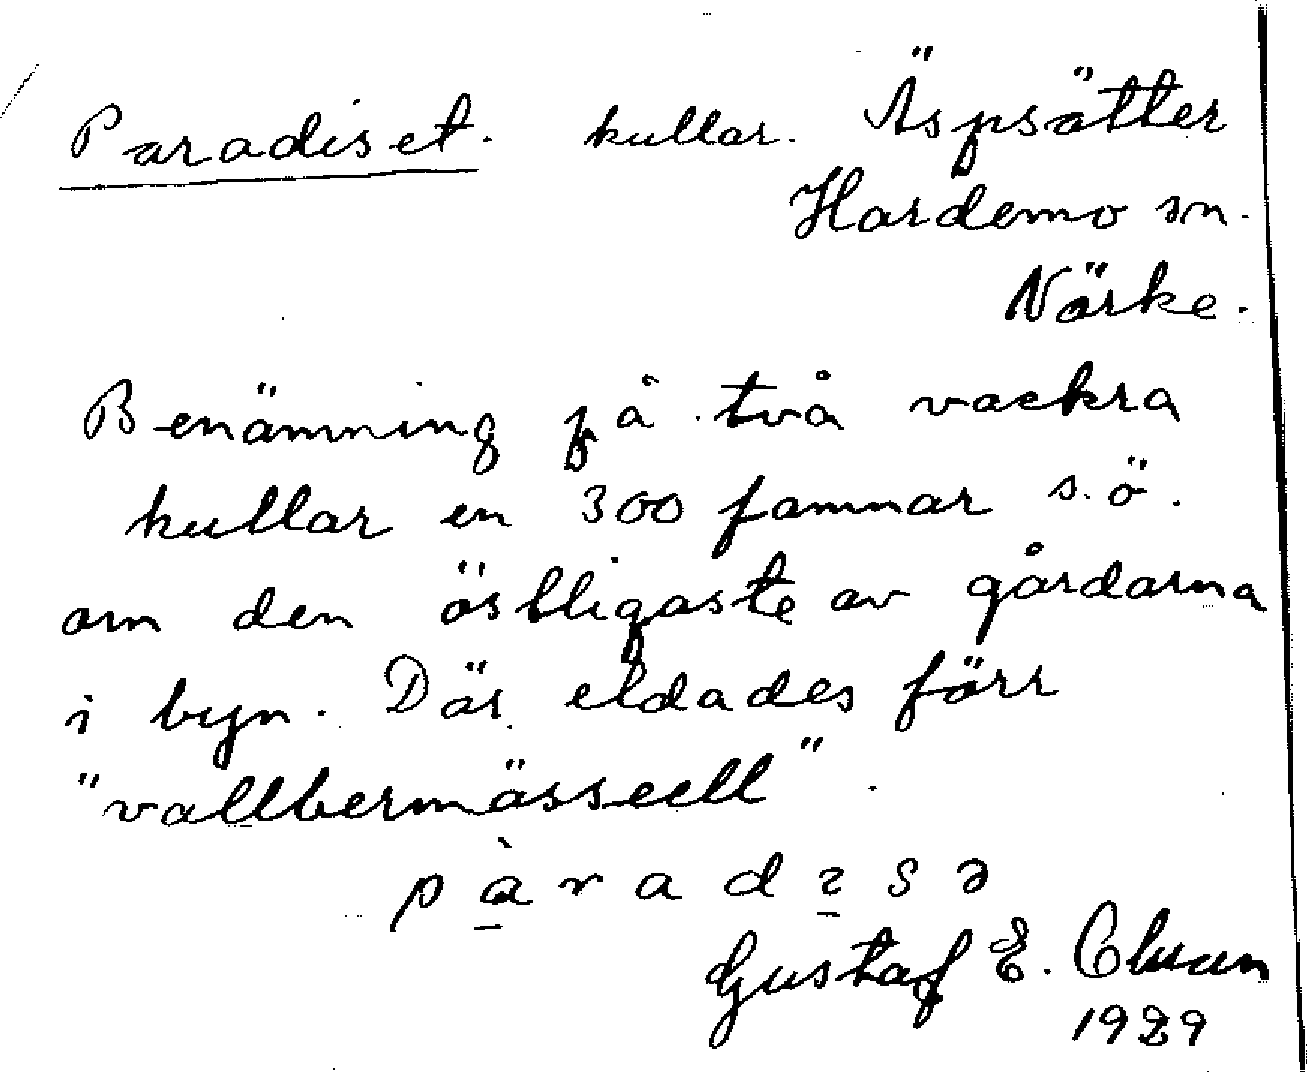 Paradiset. kullar. Äspsätter
Hardemo sn.
Närke.
Benämning på två vackra
kullar en 300 famnar s.ö.
om den östligaste av gårdarna
i byn. Där eldades förr
"vallbermässeell".
pàradɪsə
Gustaf E.
1929